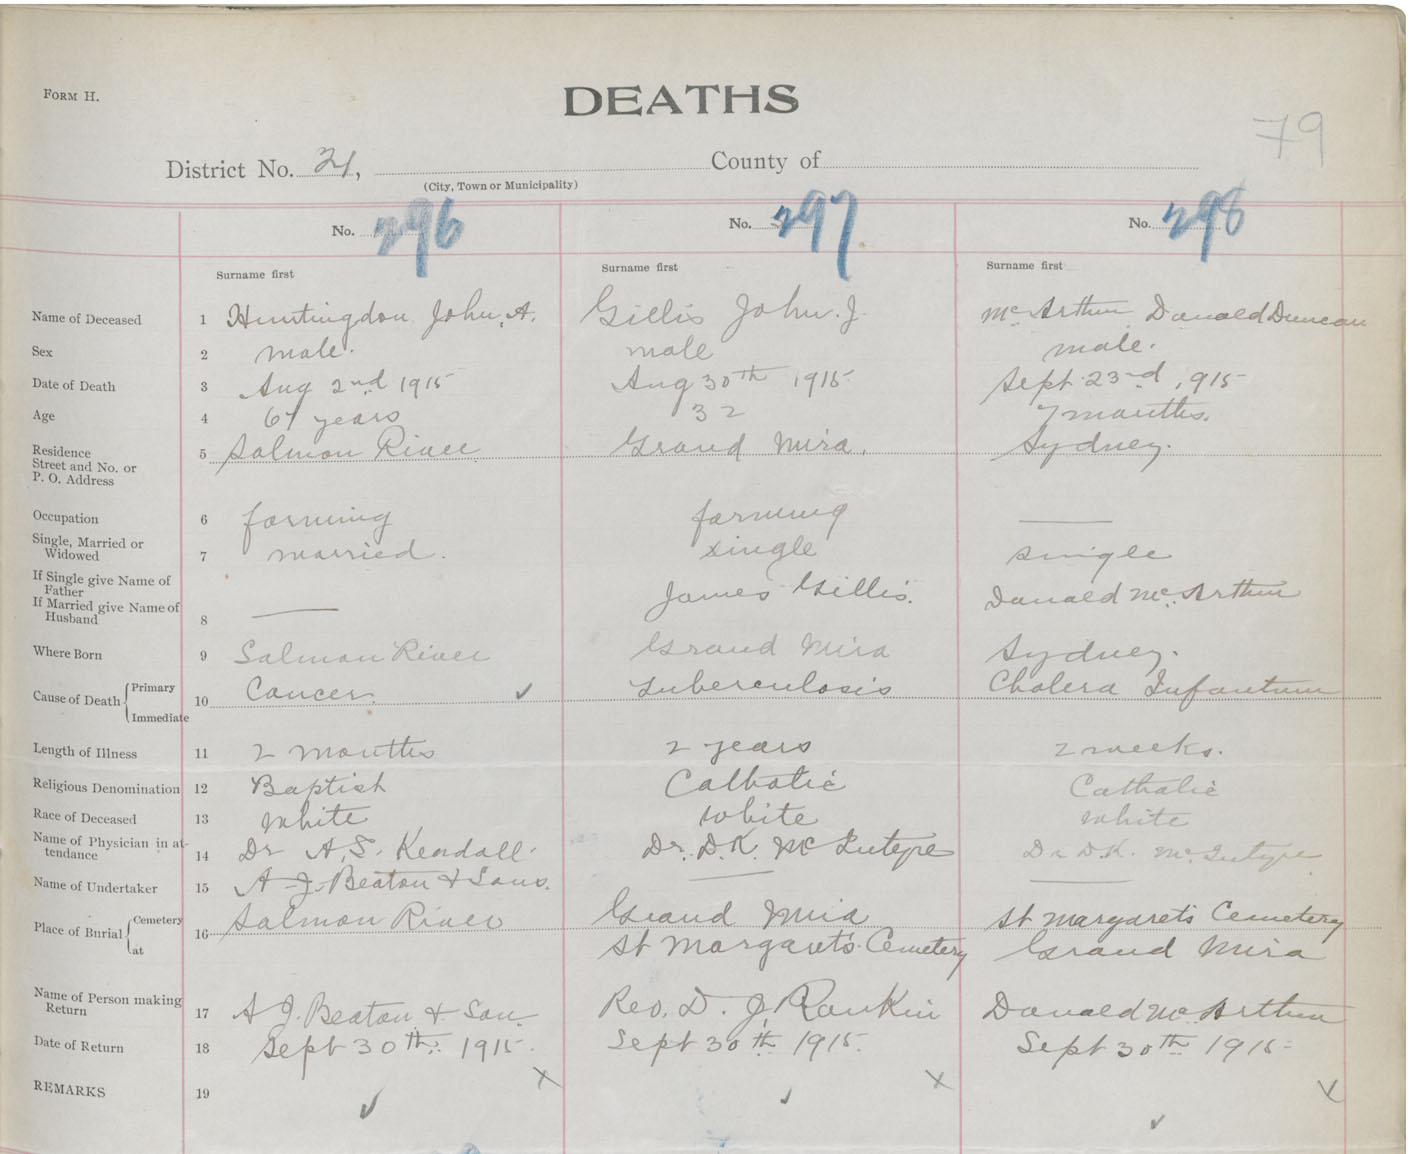 FORM H.
DEATHS
79
District No. 21, County of
(City, Town or Municipality)
No. 296 No. 297 No. 298
Surname first Surname first Surname first
Name of Deceased 1 Huntingdon John, A. Gillis John. J. McArthur Donald Duncan
Sex 2 male. male male.
Date of Death 3 Aug 2nd 1915 Aug 30th 1915 Sept 23rd, 1915
Age 4 67 years 32 7 months.
Residence 5 Salmon River Grand Mira. Sydney.
Street and No. or
P. O. Address
Occupation 6 farming farming ——
Single, Married or
Widowed 7 married. single single
If Single give Name of
Father
If Married give Name of
Husband 8 —— James Gillis. Donald McArthur
Where Born 9 Salmon River Grand Mira Sydney.
Cause of Death { Primary 10 Cancer. ✓ Tuberculosis Cholera Infantum
Immediate
Length of Illness 11 2 months 2 years 2 weeks.
Religious Denomination 12 Baptist Catholic Catholic
Race of Deceased 13 White White White
Name of Physician in at-
tendance 14 Dr A, S. Kendall. Dr. D. K. McIntyre Dr D.K. McIntyre
Name of Undertaker 15 A J. Beaton & Sons. —— ——
Place of Burial { Cemetery 16 Salmon River Grand Mira St Margaret's Cemetery
at St Margaret's Cemetery Grand Mira
Name of Person making
Return 17 A J. Beaton & Son. Rev. D. J. Rankin Donald McArthur
Date of Return 18 Sept 30th. 1915. Sept 30th 1915. Sept 30th 1915
REMARKS 19 ✓ x ✓ x ✓ x